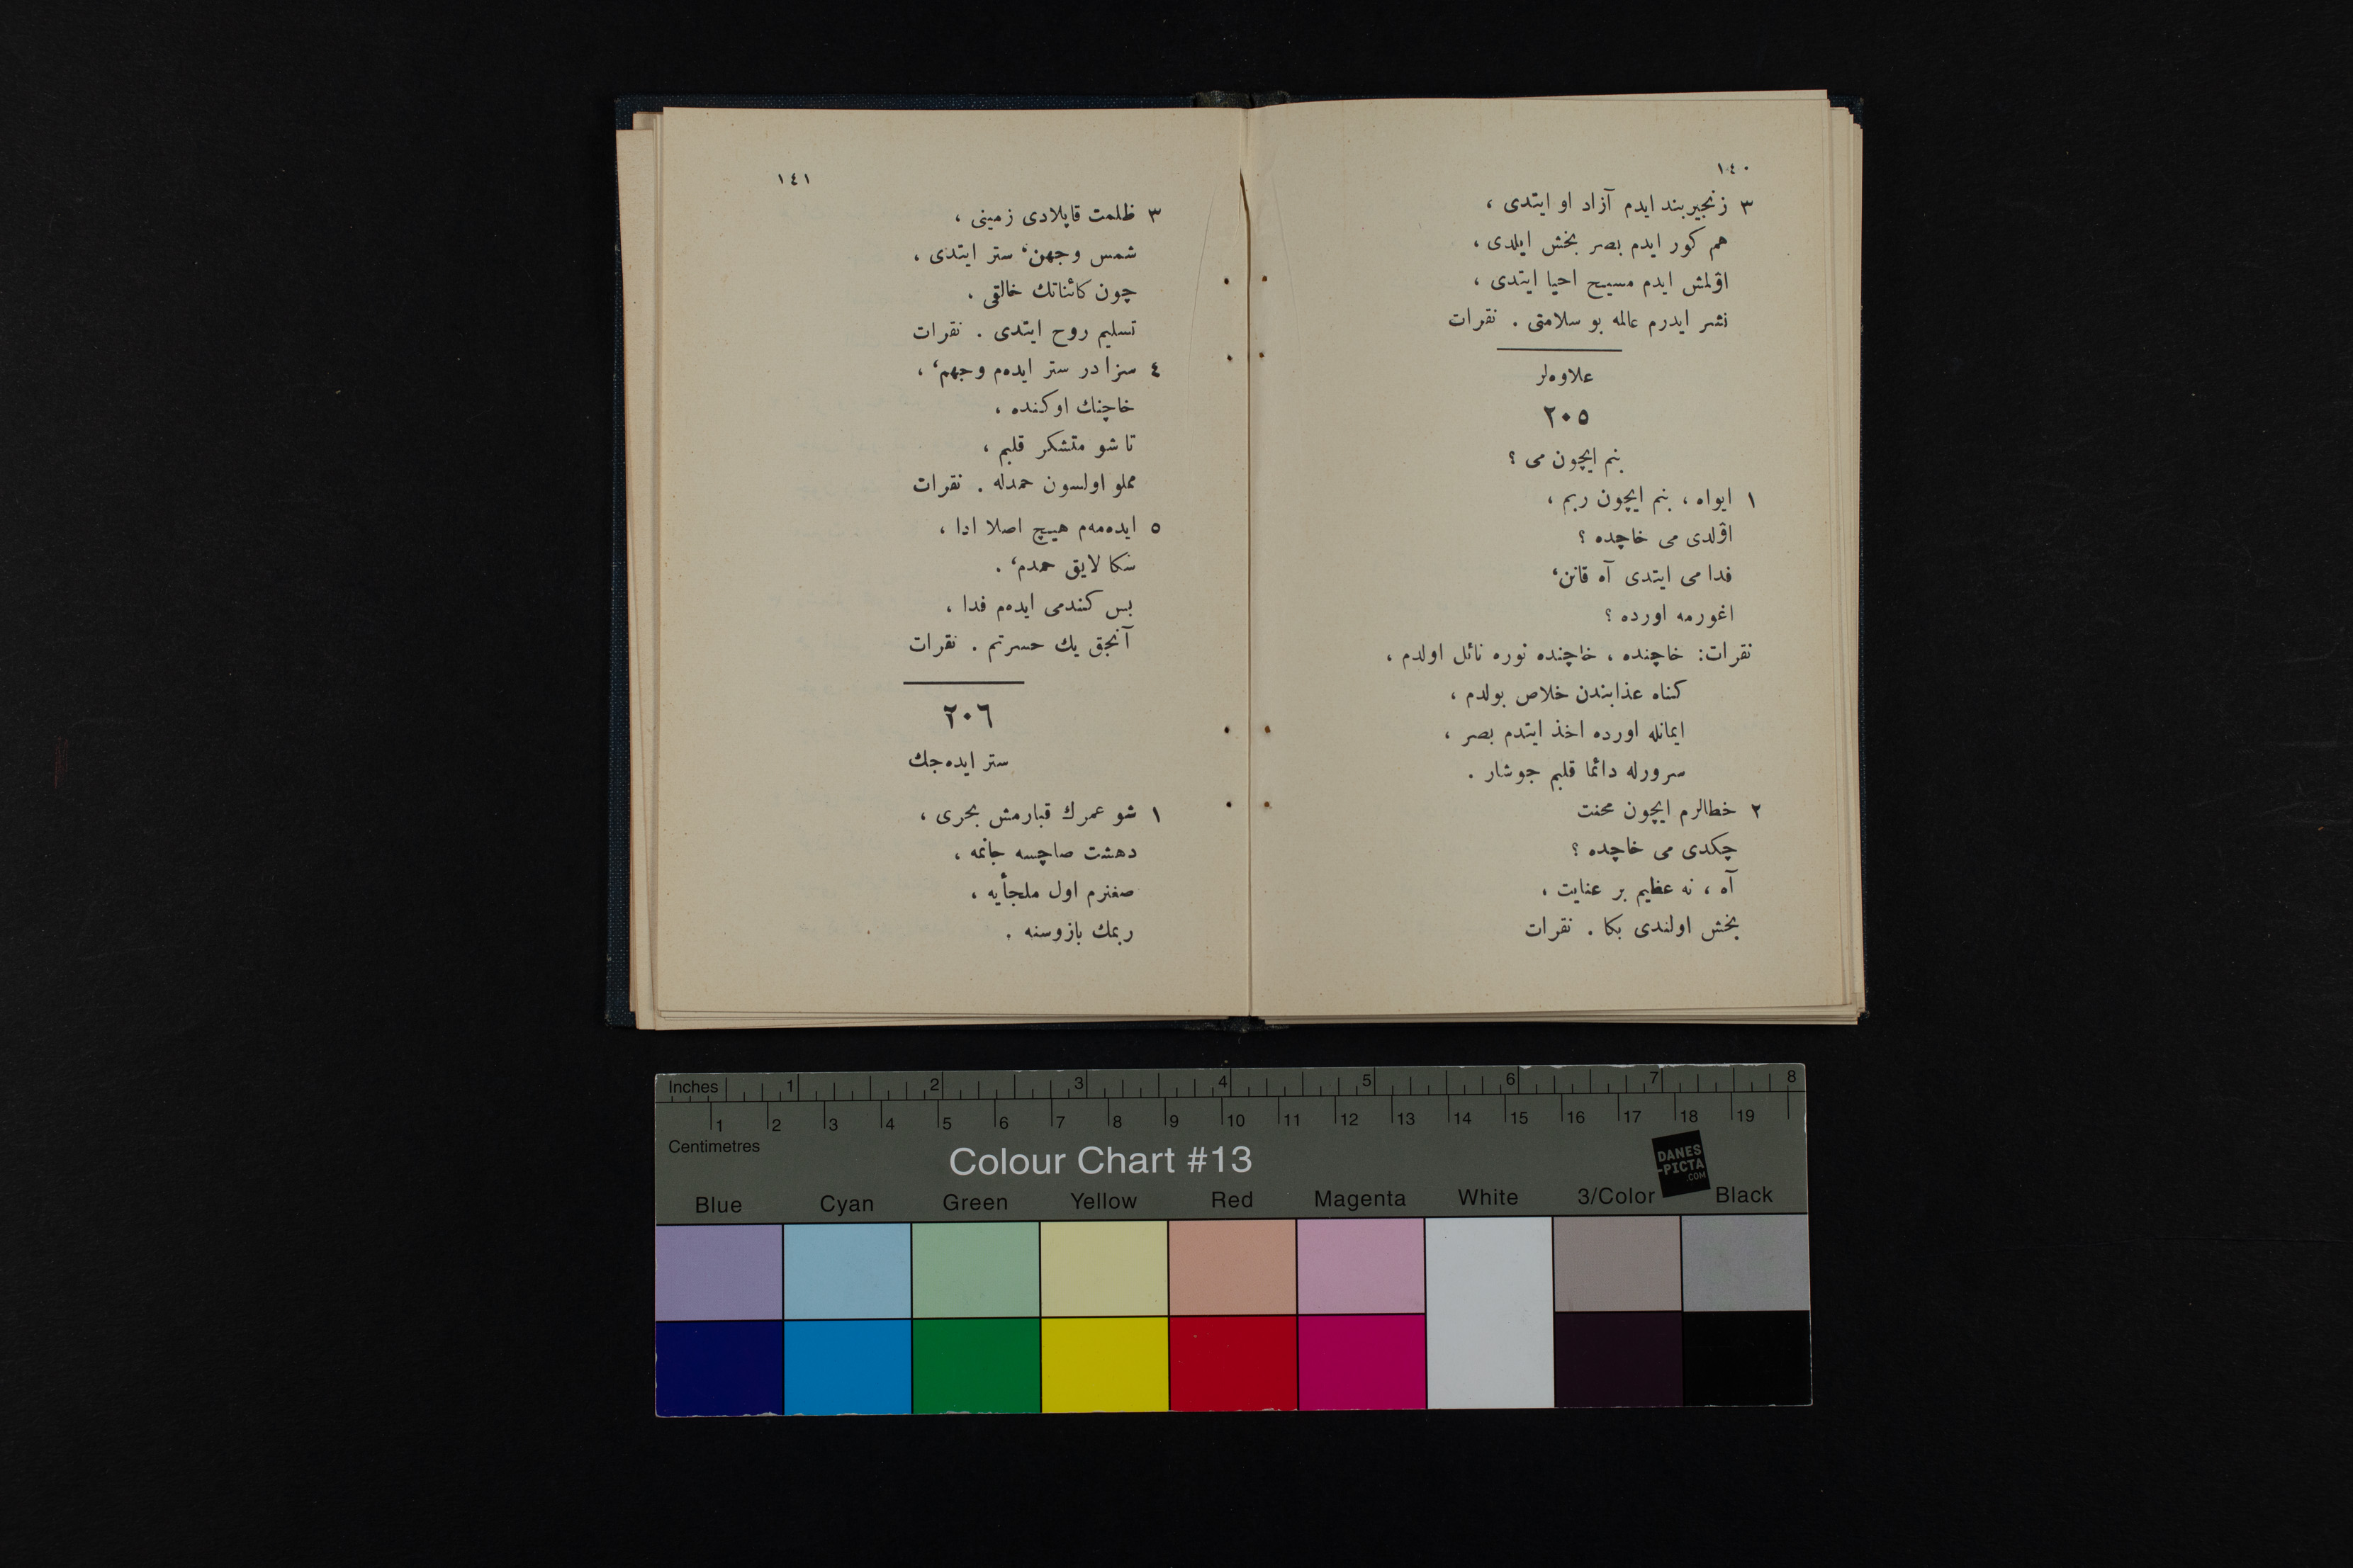 ١٤٠
٣ زنجیربند ایدم آزاد او ایتدی ،
هم کور ایدم بصر بخش ایلدی ،
اۆلمش ایدم مسیح احیا ایتدی ،
نشر ایدرم عالمه بو سلامتی . نقرات
علاوه‌لر
٢٠٥
بنم ایچون می ؟
١ ایواه ، بنم ایچون ربم ،
اۆلدی می خاچده ؟
فدا می ایتدی آه قانن،
اغورمه اورده ؟
نقرات: خاچنده ، خاچنده نوره نائل اولدم ،
كناه عذابندن خلاص بولدم ،
ایمانله اورده اخذ ایتدم بصر ،
سرورله دائما قلبم جوشار .
٢ خطالرم ایچون محنت
چكدی می خاچده ؟
آه ، نه عظیم بر عنایت ،
بخش اولندی بكا . نقرات
١٤١
٣ ظلمت قاپلادی زمینی ،
شمس وجهن، ستر ایتدی ،
چون كائناتك خالقی .
تسلیم روح ایتدی . نقرات
٤ سزادر ستر ایده‌م وجهم، ،
خاچنك اوكنده ،
تا شو متشكر قلبم ،
مملو اولسون حمدله . نقرات
٥ ایده‌مه‌م هیچ اصلا ادا ،
سكا لایق حمدم، .
بس كندمی ایده‌م فدا ،
آنجق یك حسرتم . نقرات
٢٠٦
ستر ایده‌جك
١ شو عمرك قبارمش بحری ،
دهشت صاچسه جانمه ،
صغنرم اول ملجأیه ،
ربمك بازوسنه .
Inches 1 2 3 4 5 6 7 8
1 2 3 4 5 6 7 8 9 10 11 12 13 14 15 16 17 18 19
Centimetres
Colour Chart #13
DANES
-PICTA
.COM
Blue Cyan Green Yellow Red Magenta White 3/Color Black